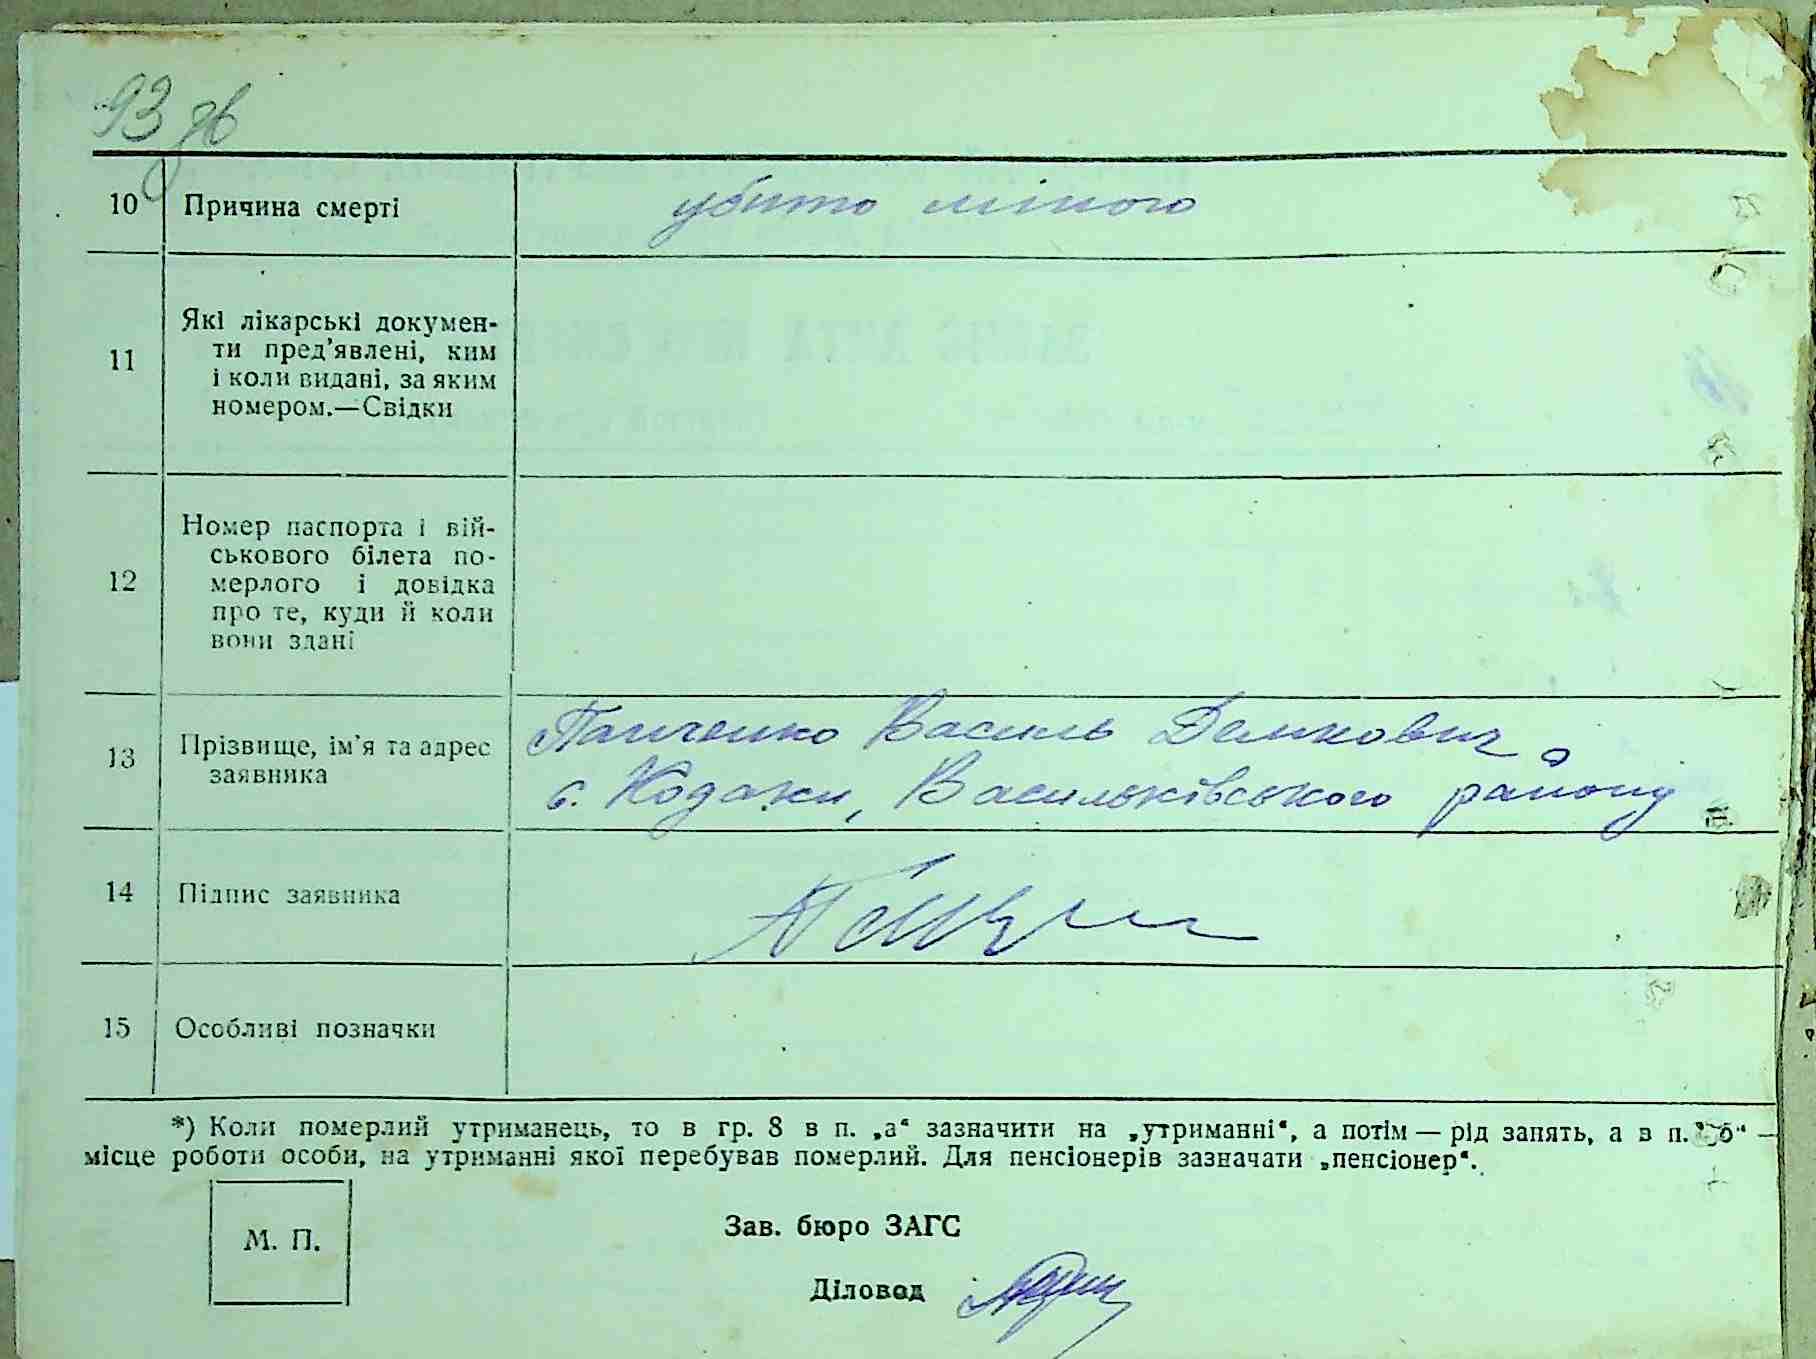 93 зв
10 Причина смерті убито міною
11 Які лікарські докумен-
ти пред'явлені, ким
і коли видані, за яким
номером.—Свідки
12 Номер паспорта і вій-
ськового білета по-
мерлого і довідка
про те, куди й коли
вони здані
13 Прізвище, ім'я та адрес
заявника
Панченко Василь Демкович
с. Кодаки, Васильківського району
14 Підпис заявника
15 Особливі позначки
*) Коли померлий утриманець, то в гр. 8 в п. „а“ зазначити на „утриманні“, а потім — рід занять, а в п. „б“ —
місце роботи особи, на утриманні якої перебував померлий. Для пенсіонерів зазначати „пенсіонер“.
М. П.
Зав. бюро ЗАГС
Діловод